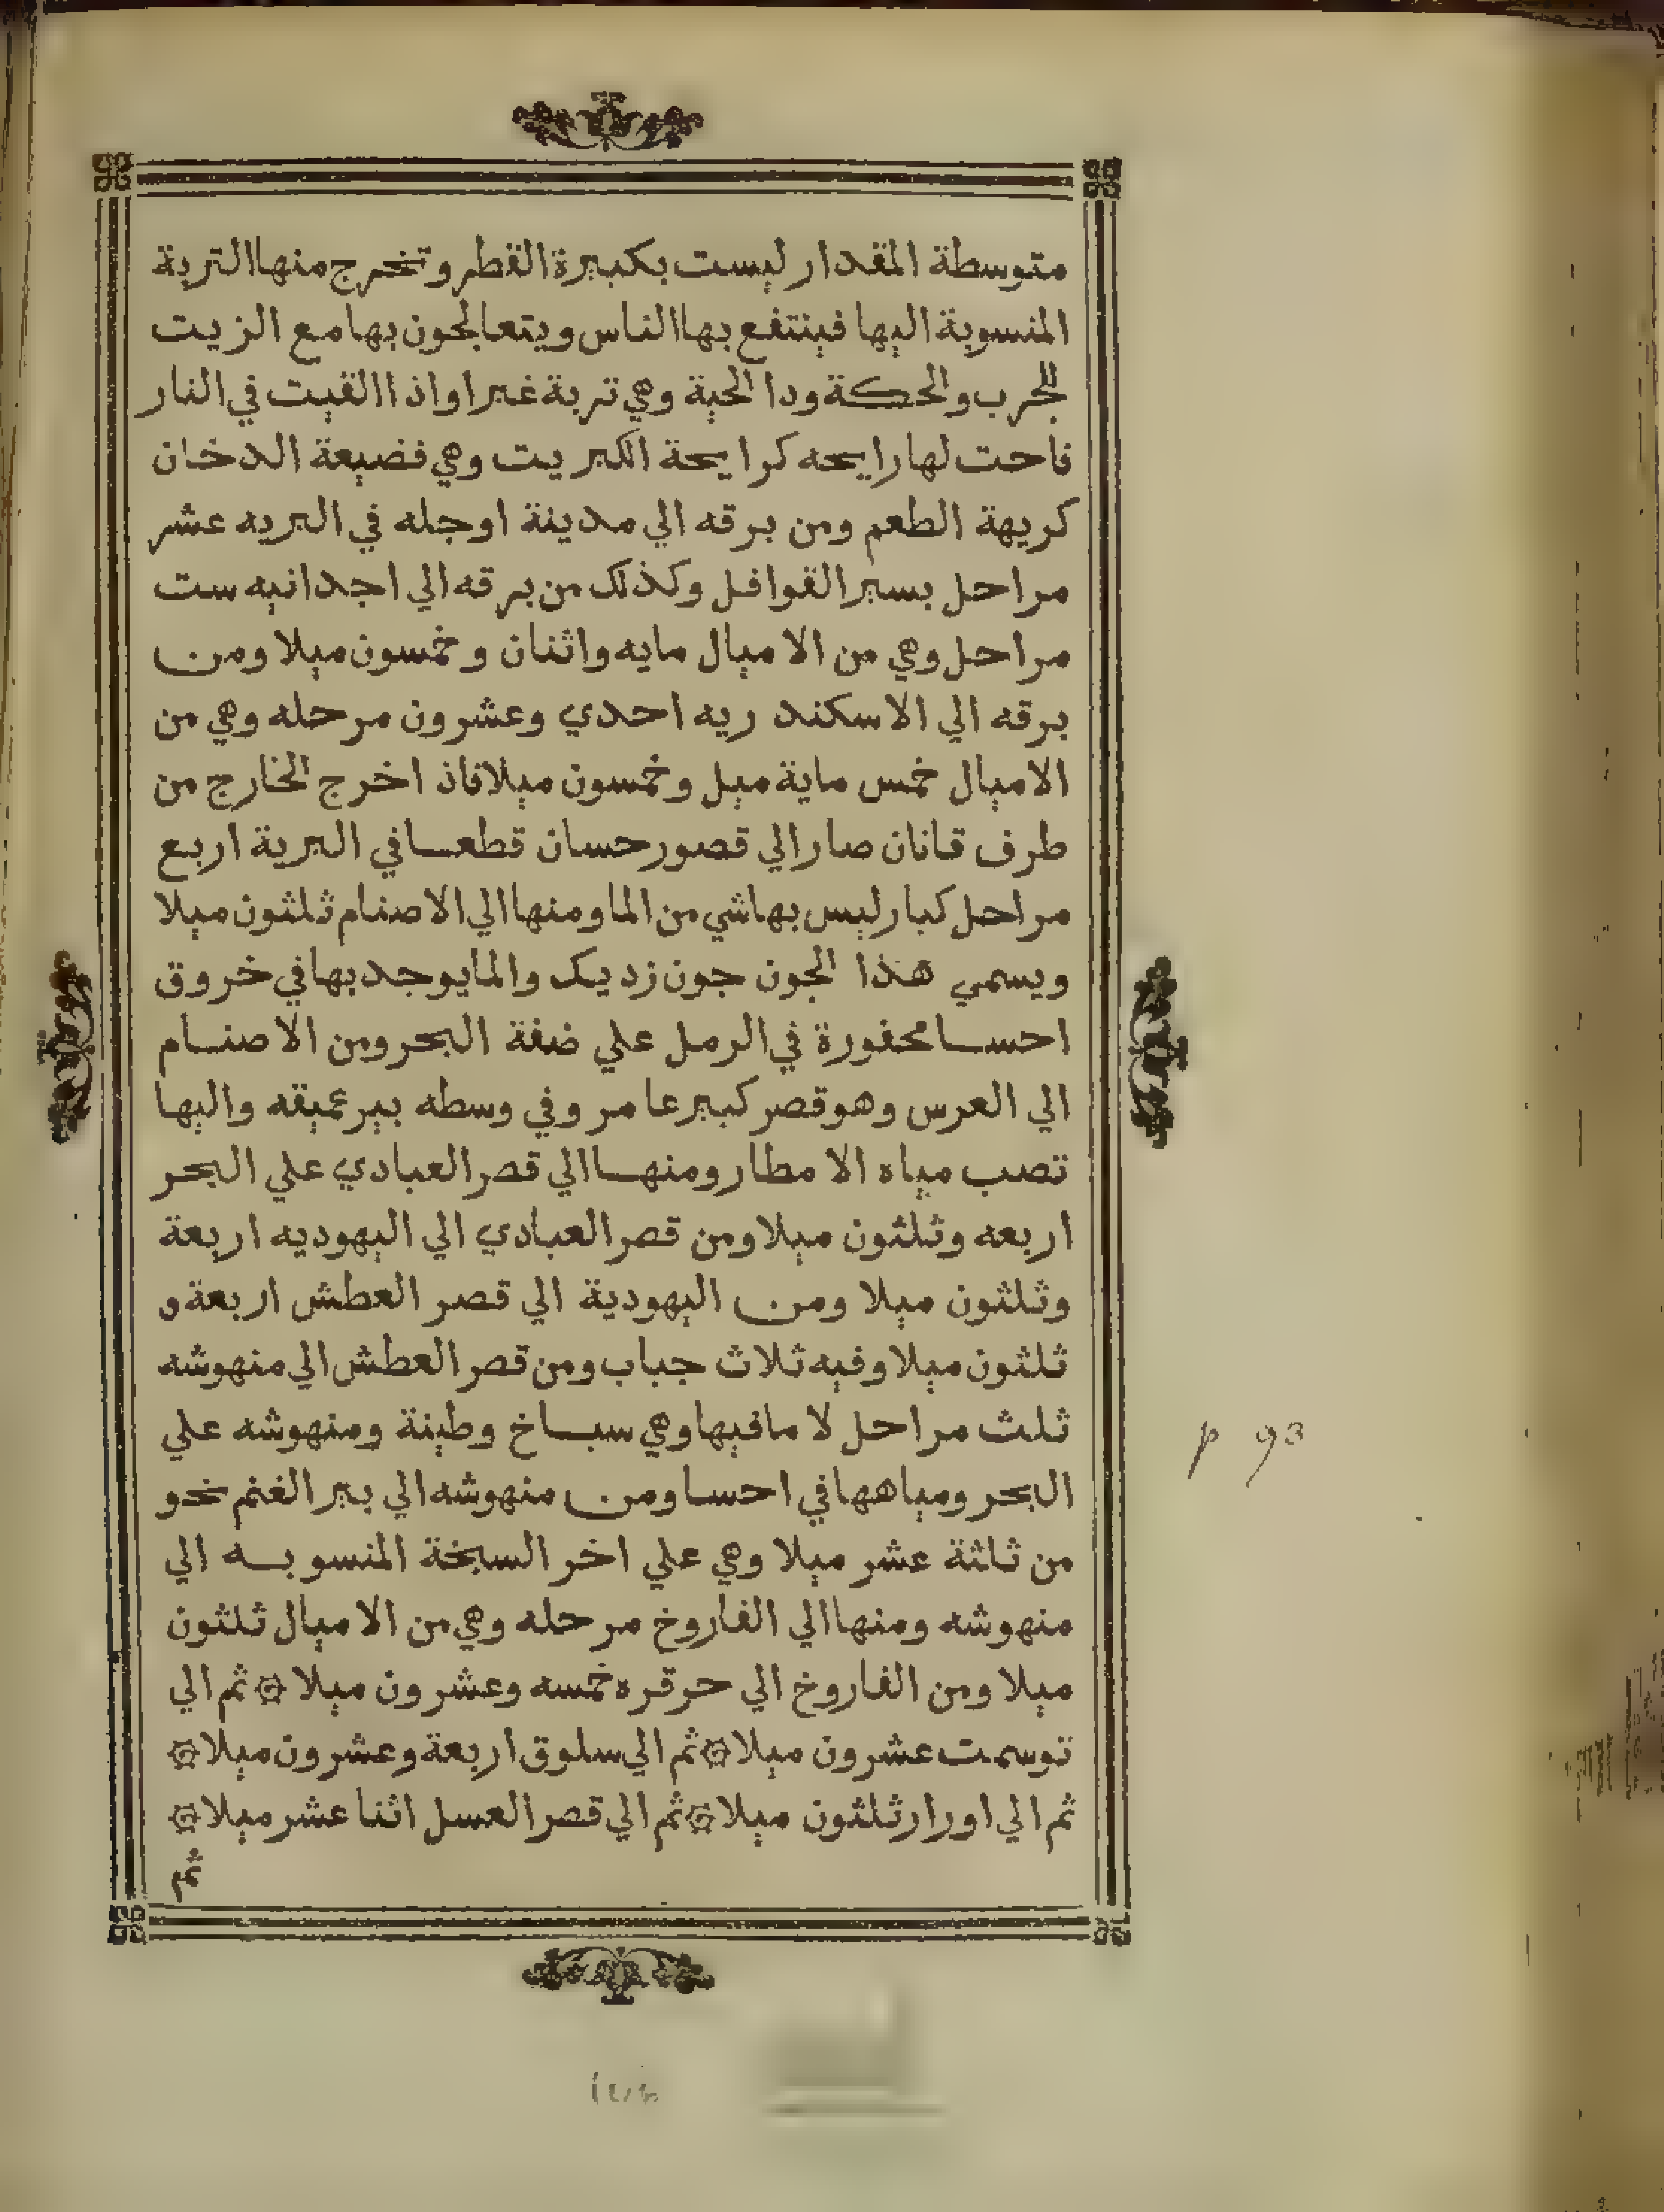 متوسطة المقدار ليست بكبيرة القطر وتخرج منها التربة
المنسوبة اليها فينتفع بها الناس ويتعالجون بها مع الزيت
للجرب والحكة ودا الحية وهي تربة غبرا واذا القيت في النار
فاحت لها رايحه كرايحة الكبريت وهي فضيعة الدخان
كريهة الطعم ومن برقه الي مدينة اوجله في البريه عشر
مراحل بسير القوافل وكذلك من برقه الي اجدانيه ست
مراحل وهي من الاميال مايه واثنان وخمسون ميلا ومن
برقه الي الاسكند ريه احدي وعشرون مرحله وهي من
الاميال خمس ماية ميل وخمسون ميلا فاذ اخرج الخارج من
طرف قانان صار الي قصور حسان قطعا في البرية اربع
مراحل كبار ليس بها شي من الما ومنها الي الاصنام ثلثون ميلا
ويسمي هذا الجون جون زديك والما يوجد بها في خروق
احسا محفورة في الرمل علي ضفة البحر ومن الاصنام
الي العرس وهو قصر كبير عامر وفي وسطه بير عميقه واليها
تصب مياه الامطار ومنها الي قصر العبادي علي البحر
اربعه وثلثون ميلا ومن قصر العبادي الي اليهوديه اربعة
وثلثون ميلا ومن اليهودية الي قصر العطش اربعة و
ثلثون ميلا وفيه ثلاث جباب ومن قصر العطش الي منهوشه
ثلث مراحل لا ما فيها وهي سباخ وطينة ومنهوشه علي
البحر ومياهها في احسا ومن منهوشه الي بير الغنم نحو
من ثلثة عشر ميلا وهي علي اخر السبخة المنسوبه الي
منهوشه ومنها الي الفاروخ مرحله وهي من الاميال ثلثون
ميلا ومن الفاروخ الي حرقره خمسه وعشرون ميلا ۞ ثم الي
توسمت عشرون ميلا ۞ ثم الي سلوق اربعة وعشرون ميلا ۞
ثم الي اورار ثلثون ميلا ۞ ثم الي قصر العسل اثنا عشر ميلا ۞
ثم
p 93